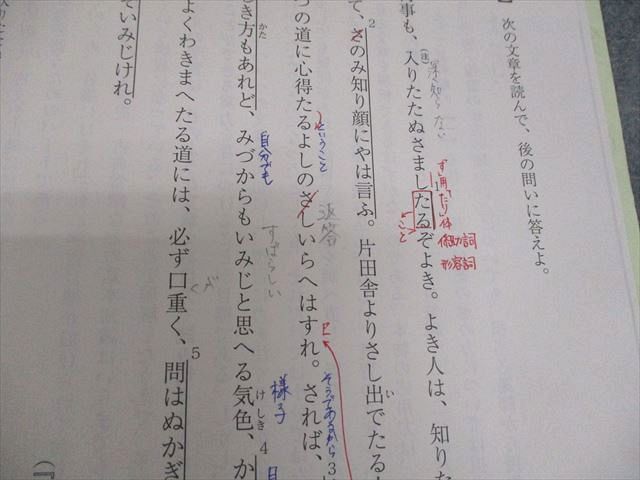 次の文章を読んで、後の問いに答えよ。
事も、入りたたぬさましたるぞよき。よき人は、知りた
て、さのみ知り顔にやは言ふ。片田舎よりさし出でたる
つの道に心得たるよしのさしいらへはすれ。されば、
き方もあれど、みづからもいみじと思へる気色、か
よくわきまへたる道には、必ず口重く、問はぬかぎ
ていみじけれ。
1
2
3
4
5
かた
い
けしき
深く知らない
体
係助詞
形容詞
こと
ということ
返答
自分でも
すばらしい
様子
そうであるから